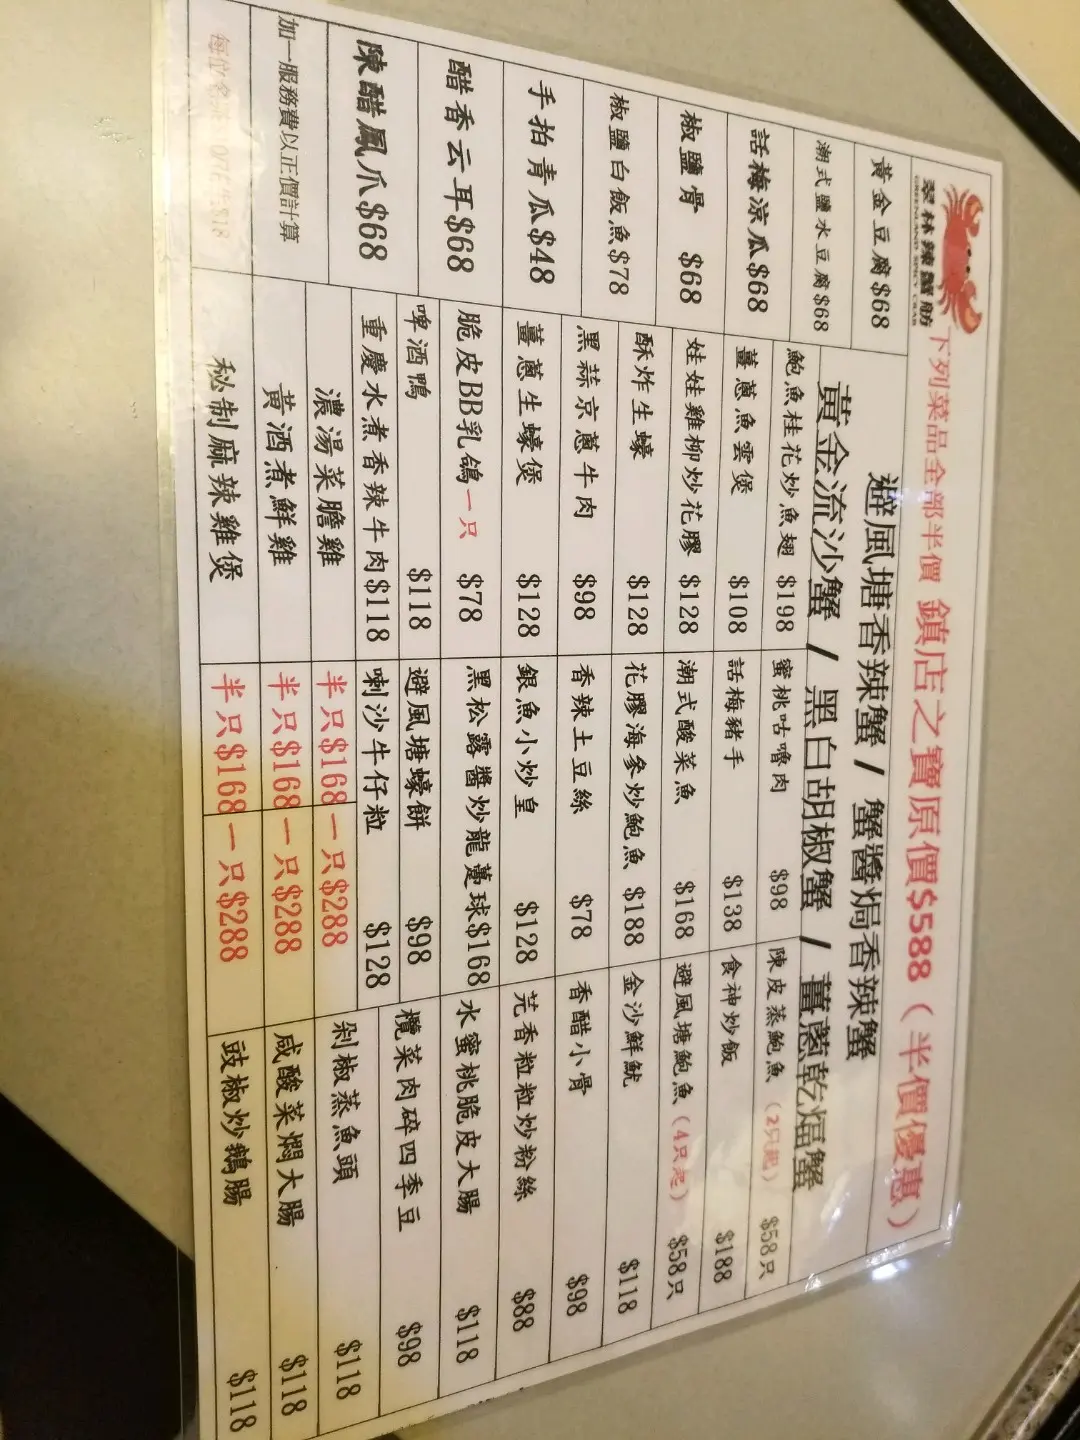 翠林辣蟹舫
GREENLAND SPICY CRAB
下列菜品全部半價 鎮店之寶原價$588（半價優惠）
避風塘香辣蟹 / 蟹醬焗香辣蟹
黃金流沙蟹 / 黑白胡椒蟹 / 薑蔥乾煏蟹
黃金豆腐$68
潮式鹽水豆腐$68
話梅涼瓜$68
椒鹽骨 $68
椒鹽白飯魚$78
手拍青瓜$48
醋香云耳$68
陳醋鳳爪$68
加一服務費以正價計算
每位
鮑魚桂花炒魚翅 $198
薑蔥魚雲煲 $108
娃娃雞柳炒花膠 $128
酥炸生蠔 $128
黑蒜京蔥牛肉 $98
薑蔥生蠔煲 $128
脆皮BB乳鴿一只 $78
啤酒鴨 $118
重慶水煮香辣牛肉$118
濃湯菜膽雞 半只$168 一只$288
黃酒煮鮮雞 半只$168 一只$288
秘制麻辣雞煲 半只$168 一只$288
蜜桃咕嚕肉 $98
話梅豬手 $138
潮式酸菜魚 $168
花膠海參炒鮑魚 $188
香辣土豆絲 $78
銀魚小炒皇 $128
黑松露醬炒龍躉球$168
避風塘蠔餅 $98
喇沙牛仔粒 $128
陳皮蒸鮑魚（2只起） $58只
食神炒飯 $188
避風塘鮑魚（4只起） $58只
金沙鮮魷 $118
香醋小骨 $98
芫香粒粒炒粉絲 $88
水蜜桃脆皮大腸 $118
欖菜肉碎四季豆 $98
剁椒蒸魚頭 $118
咸酸菜燜大腸 $118
豉椒炒鵝腸 $118